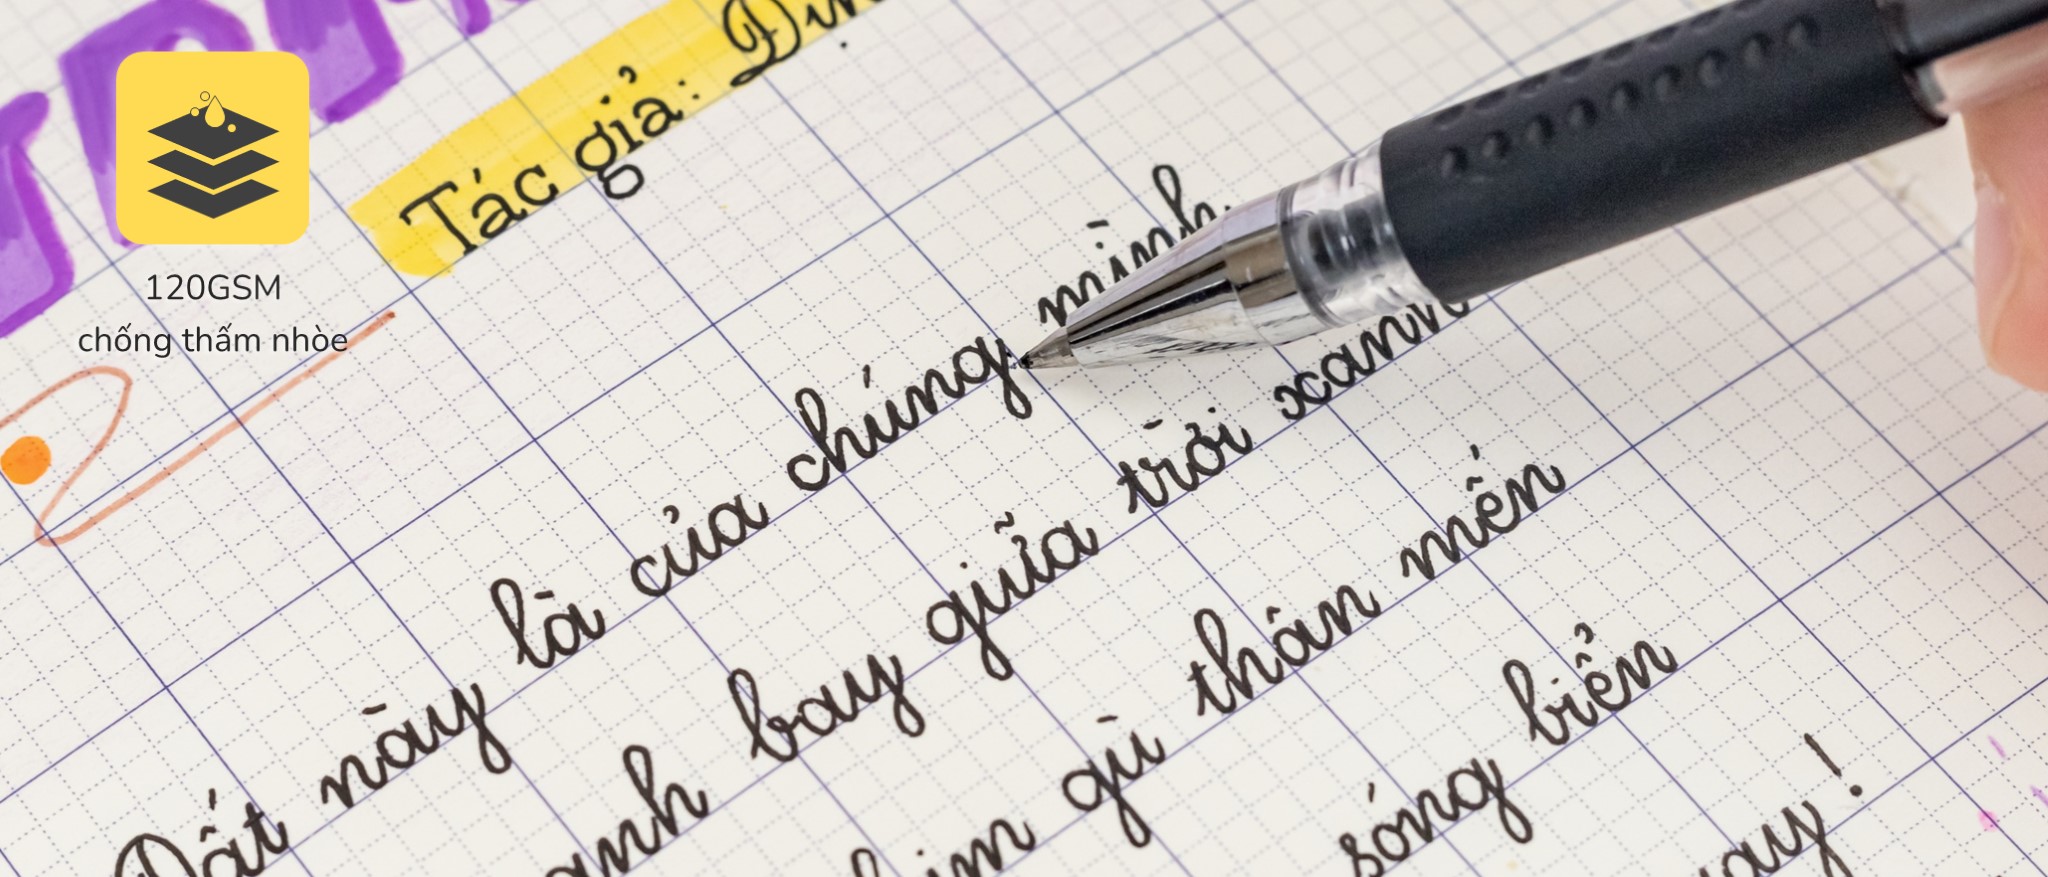 120GSM
chống thấm nhòe
Tác giả:
Đất này là của chúng mình
anh bay giữa trời xanh
gù thân mến
sóng biển